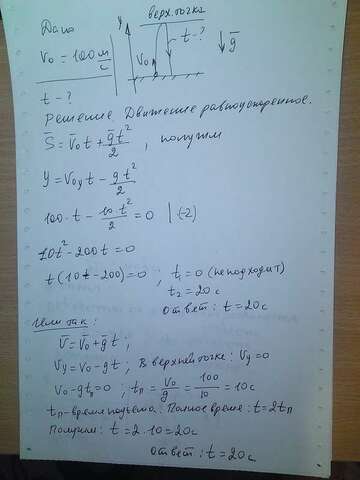 Дано
верх. точка
y
V₀ = 100 м/с
V₀
t - ?
g̅
t - ?
Решение. Движение равноускоренное.
S̅ = V̅₀t + g̅t²/2 , получим
y = V₀yt - gt²/2
100·t - 10·t²/2 = 0 | (-2)
10t² - 200t = 0
t(10t - 200) = 0 ; t₁ = 0 (не подходит)
t₂ = 20с
Ответ: t = 20с
Или так:
V̅ = V̅₀ + g̅t ;
Vy = V₀ - gt ; В верхней точке: Vy = 0
V₀ - gtп = 0 ; tп = V₀/g = 100/10 = 10с
tп - время подъема. Полное время: t = 2tп
Получим: t = 2·10 = 20с
Ответ: t = 20с